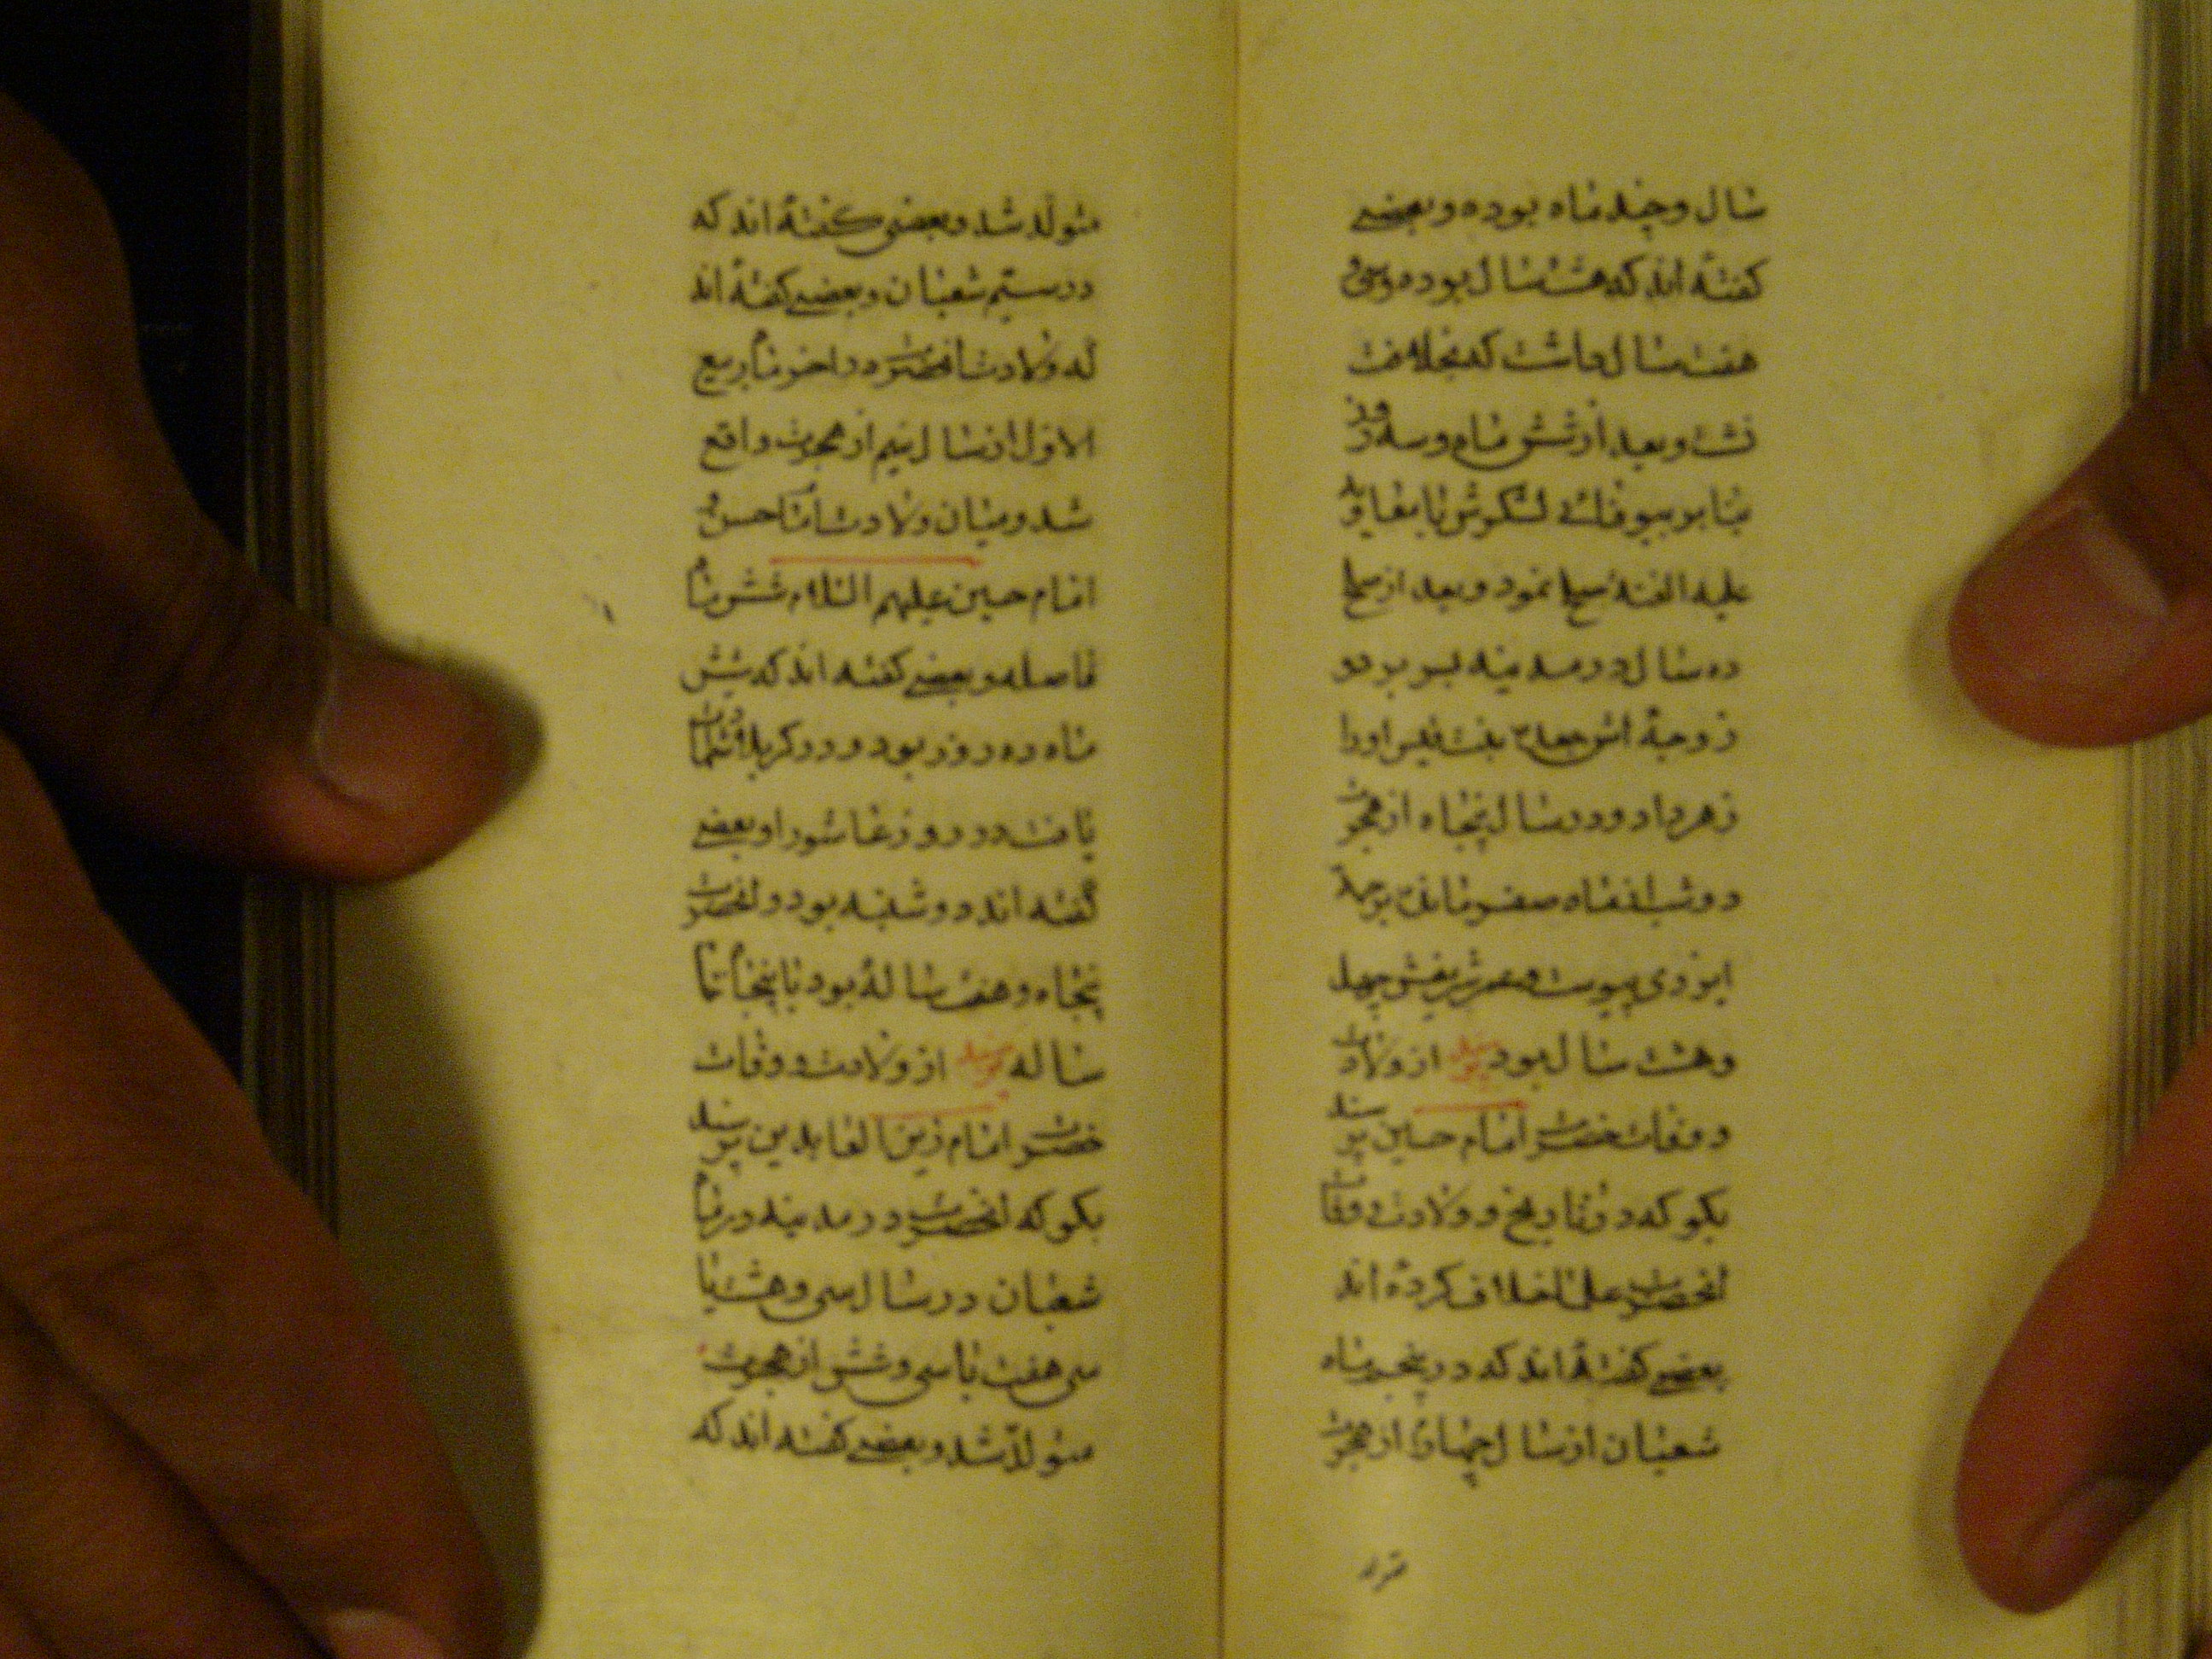 سال و چند ماه بوده و بعضی
کفته اند که هشت سال بوده و سی و
هفت سال داشت که بخلافت
نشست و بعد از شش ماه و سه روز
بنا بر بیوفائی لشکرش با معاویه
علیه اللعنه صلح نمود و بعد از صلح
ده سال در مدینه بسر برد و
زوجه اش جعده بنت قیس او را
زهر داد و در سال پنجاه از هجرت
دو شب از ماه صفر مانده برحمة
ایزدی پیوست و عمر شریفش چهل
و هشت سال بود پرسند از ولادت
و وفات حضرت امام حسین پرسند
بکو که در تاریخ و ولادت و وفات
انحضرت علما اختلاف کرده اند
بعضی کفته اند که در پنجم ماه
شعبان از سال چهارم از هجرت
متولد
متولد شد و بعضی کفته اند که
در سیم شعبان و بعضی کفته اند
که ولادت انحضرت در اخر ماه ربیع
الاول از سال سیم از هجرت واقع
شد و میان ولادت امام حسن و
امام حسین علیهم السلام شش ماه
فاصله و بعضی کفته اند که شش
ماه ده روز بود و در کربلا شهادت
یافت در روز عاشورا و بعضی
کفته اند دوشنبه بود و انحضرت
پنجاه و هفت ساله بود یا پنجاه
ساله پرسند از ولادت و وفات
حضرت امام زین العابدین پرسند
بکو که انحضرت در مدینه در ماه
شعبان در سال سی و هشت یا
سی هفت یا سی و شش از هجرت
متولد شد و بعضی کفته اند که